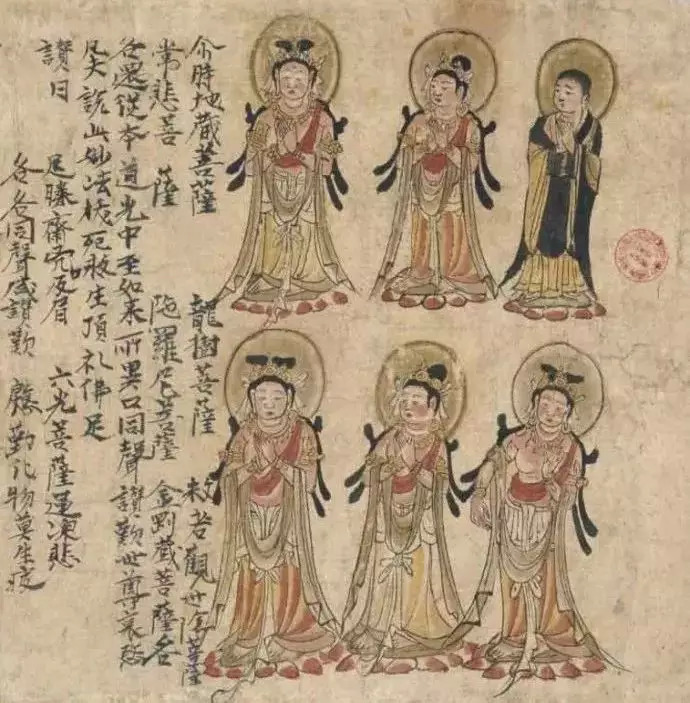 尒時地藏菩薩 龍樹菩薩 救苦觀世音菩薩
常悲菩薩 陁羅尼菩薩 金剛藏菩薩各
各還從本道光中至如來所異口同聲讚歎世尊哀愍
凡夫說此妙法拔死救生頂礼佛足
讚曰
足膝齋兇口及眉 六光菩薩運深悲
各各同聲咸讚歎 慇勤化物莫生疲